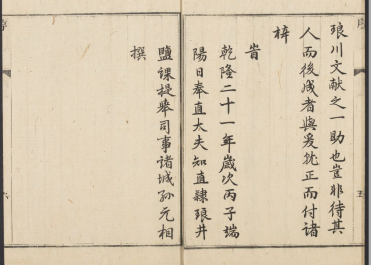 琅川文献之一助也豈非待其
人而後成者與爰訖正而付諸
梓
旹
乾隆二十一年歲次丙子端
陽日奉直大夫知直隷琅井
鹽課提舉司事諸城孫元相
撰